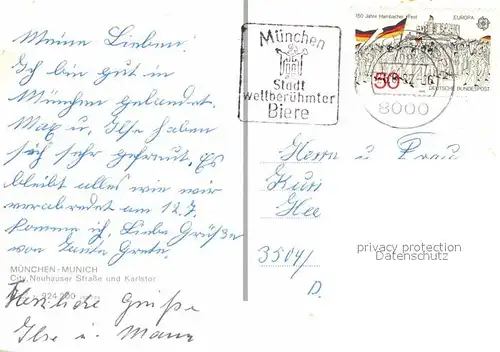 Meine Lieben!
Ich bin gut in
München gelandet.
Max u. Ilse haben
sich sehr gefreut. Es
bleibt alles wie wir
verabredet am 12.7.
komme ich. Liebe Grüße
von Tante Grete.
MÜNCHEN - MUNICH
City, Neuhauser Straße und Karlstor
924 200
Herzliche Grüße
Ilse u.
München
Stadt
weltberühmter
Biere
150 Jahre Hambacher Fest
EUROPA
50
DEUTSCHE BUNDESPOST
8000
Herrn u Frau
Kurt
3504/
D.
privacy protection
Datenschutz